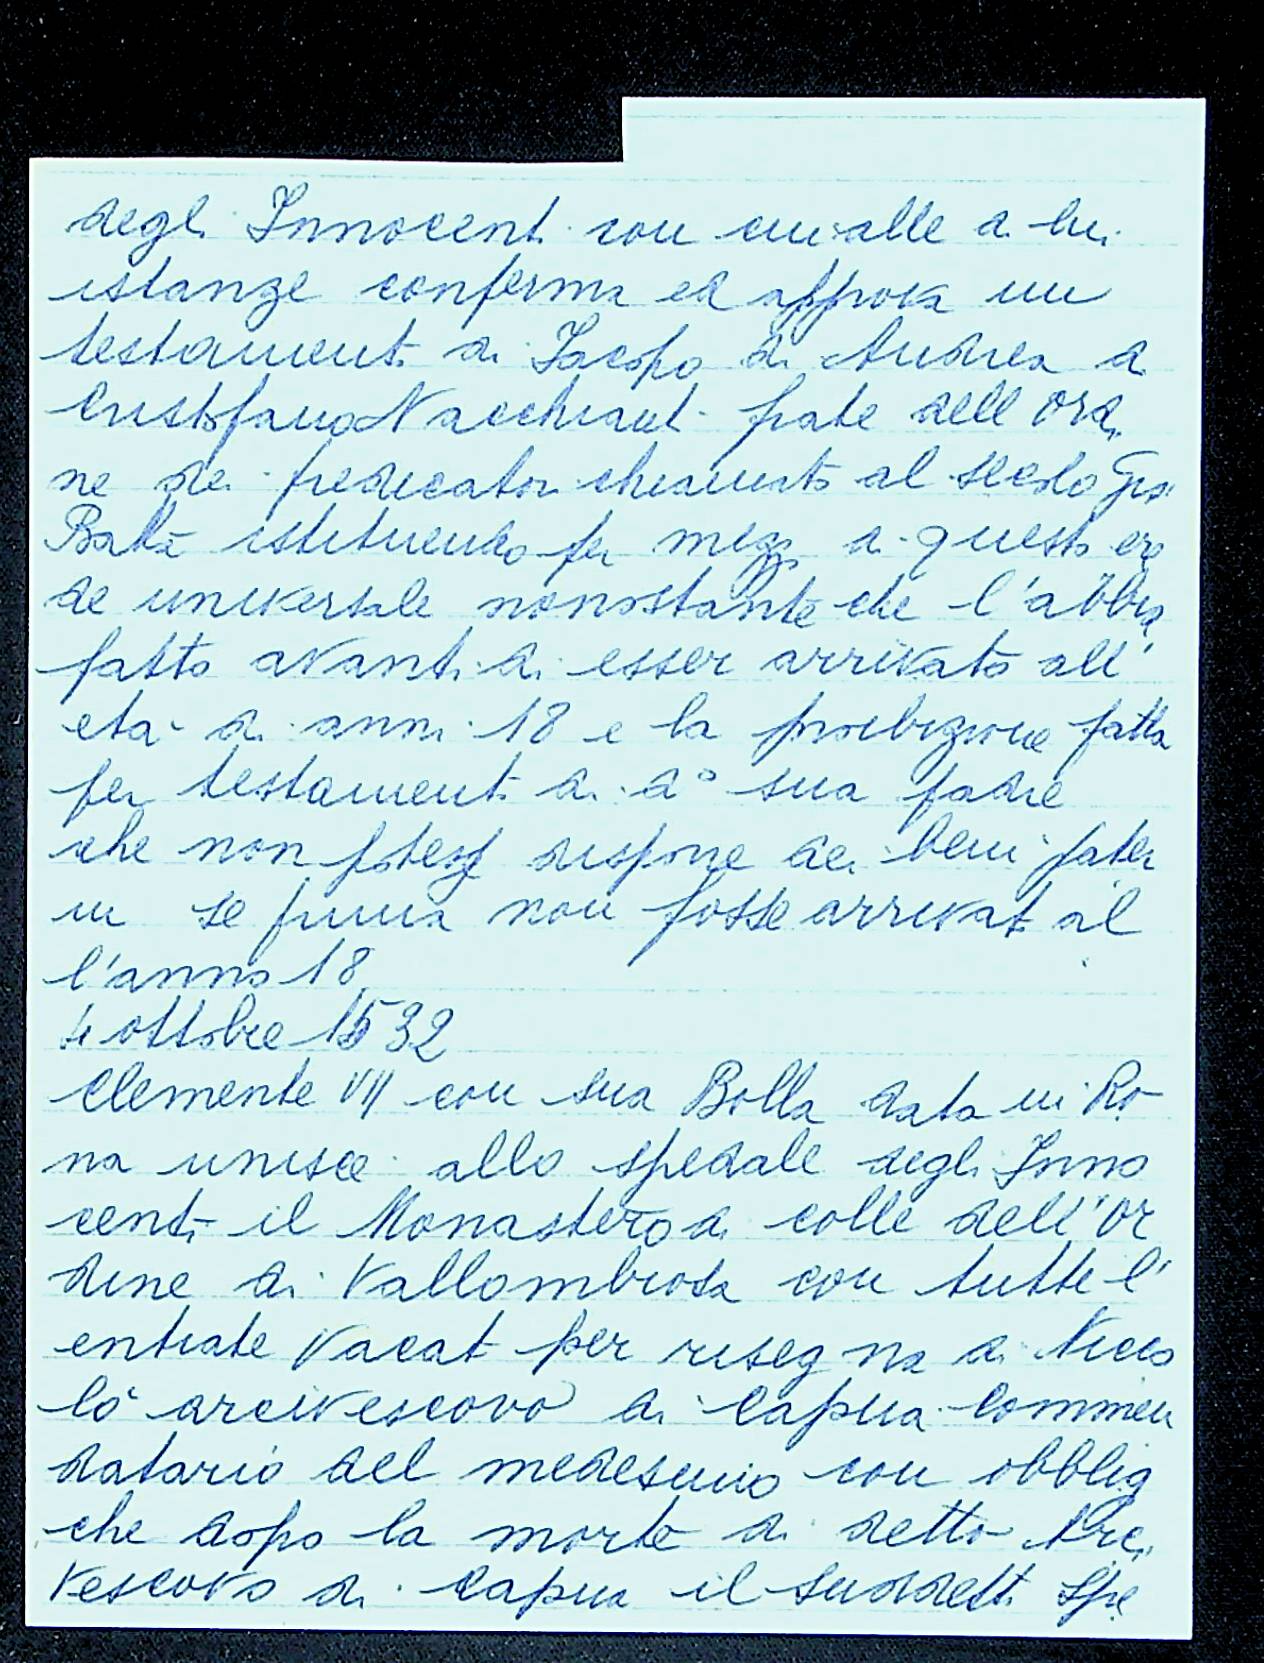 degli Innocenti con cui alle di lui
istanze conferma ed approva un
testamento di Jacopo di Andrea di
Cristofano Nacchianti frate dell'ordi
ne dei predicatori chiamato al secolo Gio
Batta istituendo per mezzo di questo ere
de universale nonostante che l'abbia
fatto avanti di esser arrivato all'
età di anni 18 e la proibizione fatta
per testamento di do sua padre
che non potesse disporre dei beni pater
ni se prima non fosse arrivato al
l'anno 18
4 ottobre 1532
Clemente VII con sua Bolla data in Ro
ma unisce allo spedale degli Inno
centi il Monastero di Colle dell'or
dine di Vallombrosa con tutte l'
entrate vacato per risegna di Nicco
lò arcivescovo di Capua Commen
datario del medesimo con obbligo
che dopo la morte di detto Arci
vescovo di Capua il suddetto Spe